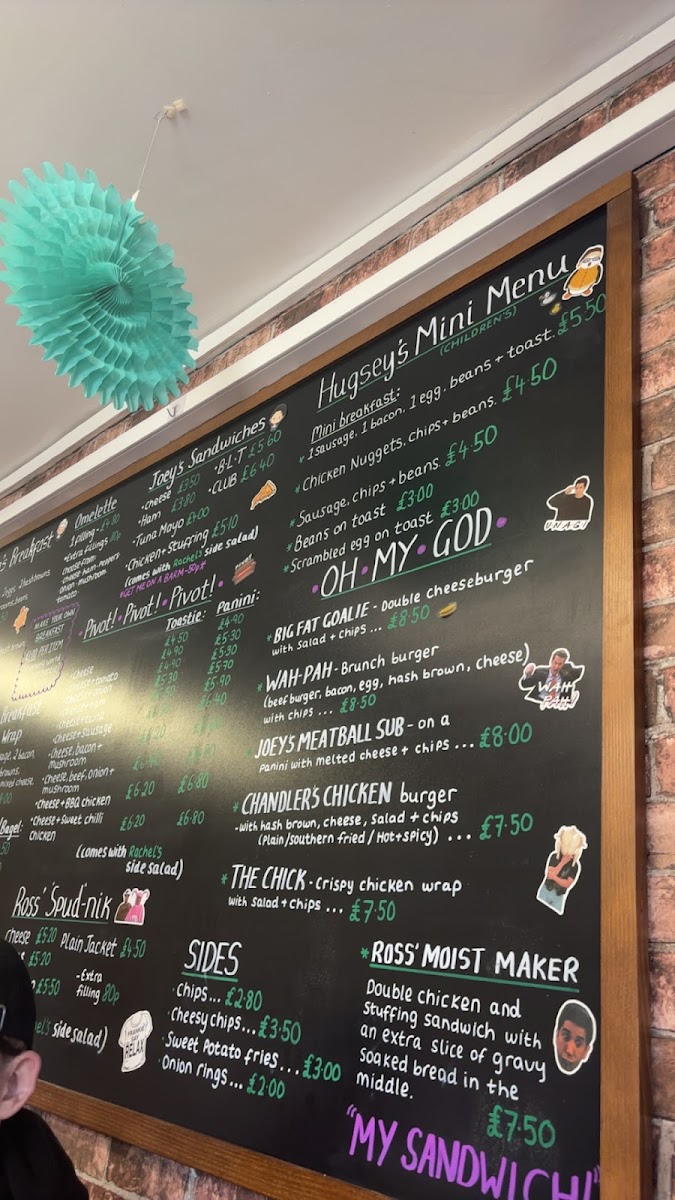 Breakfast
MAKE YOUR OWN
BREAKFAST
PER ITEM
Breakfast
Wrap
2 bacon,
Bagel:
Omelette
1 filling - £4.80
Extra fillings
Cheese ham Peppers
onion mushroom
tomato
Joey's Sandwiches
• Cheese £3.50
• Ham £3.80
• Tuna Mayo £4.00
• B·L·T £5.60
• CLUB £6.40
• Chicken + Stuffing £5.10
(comes with Rachel's side salad)
*GET ME ON A BARM - 50p*
• Pivot! • Pivot! • Pivot! •
Toastie: Panini:
£4.50 £4.90
£4.90 £5.30
£4.90 £5.30
£5.30 £5.70
£5.90
£6.40
• Cheese
• Cheese + sausage
• Cheese, bacon +
mushroom
• Cheese, beef, onion +
mushroom
• Cheese + BBQ chicken £6.20 £6.80
• Cheese + Sweet chilli
chicken £6.20 £6.80
(comes with Rachel's
side salad)
Ross' 'Spud'-nik
cheese £5.20
£5.20
£5.50
Plain Jacket £4.50
- Extra
filling 80p
side salad)
RELAX
SIDES
• Chips... £2.80
• Cheesy chips... £3.50
• Sweet Potato fries... £3.00
• Onion rings... £2.00
Hugsey's Mini Menu
(CHILDREN'S)
Mini breakfast:
* 1 sausage, 1 bacon, 1 egg, beans + toast. £5.50
* Chicken Nuggets, chips + beans. £4.50
* Sausage, chips + beans. £4.50
* Beans on toast £3.00
* Scrambled egg on toast £3.00
• OH • MY • GOD •
UNAGI
* BIG FAT GOALIE - Double cheeseburger
with Salad + chips ... £8.50
* WAH-PAH - Brunch burger
(beef burger, bacon, egg, hash brown, cheese)
with chips ... £8.50
WAH
PAH!
JOEYS MEATBALL SUB - on a
Panini with melted cheese + chips ... £8.00
* CHANDLER'S CHICKEN burger
- with hash brown, cheese, salad + chips
(Plain/southern fried/Hot + spicy) ... £7.50
* THE CHICK - Crispy chicken wrap
with Salad + chips ... £7.50
* ROSS' MOIST MAKER
Double chicken and
stuffing sandwich with
an extra slice of gravy
soaked bread in the
middle.
£7.50
"MY SANDWICH!"